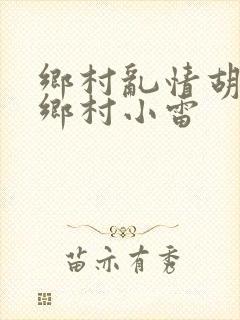 鄉村亂情胡
鄉村小雷
苗亦有秀